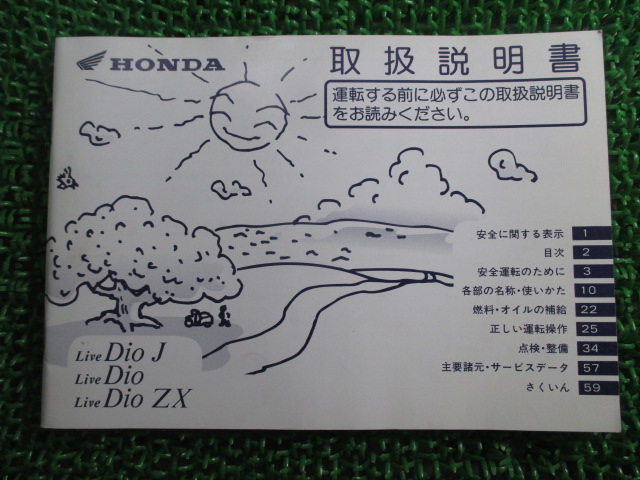 HONDA
取扱説明書
運転する前に必ずこの取扱説明書
をお読みください。
安全に関する表示 1
目次 2
安全運転のために 3
各部の名称・使いかた 10
燃料・オイルの補給 22
正しい運転操作 25
点検・整備 34
主要諸元・サービスデータ 57
さくいん 59
Live Dio J
Live Dio
Live Dio ZX